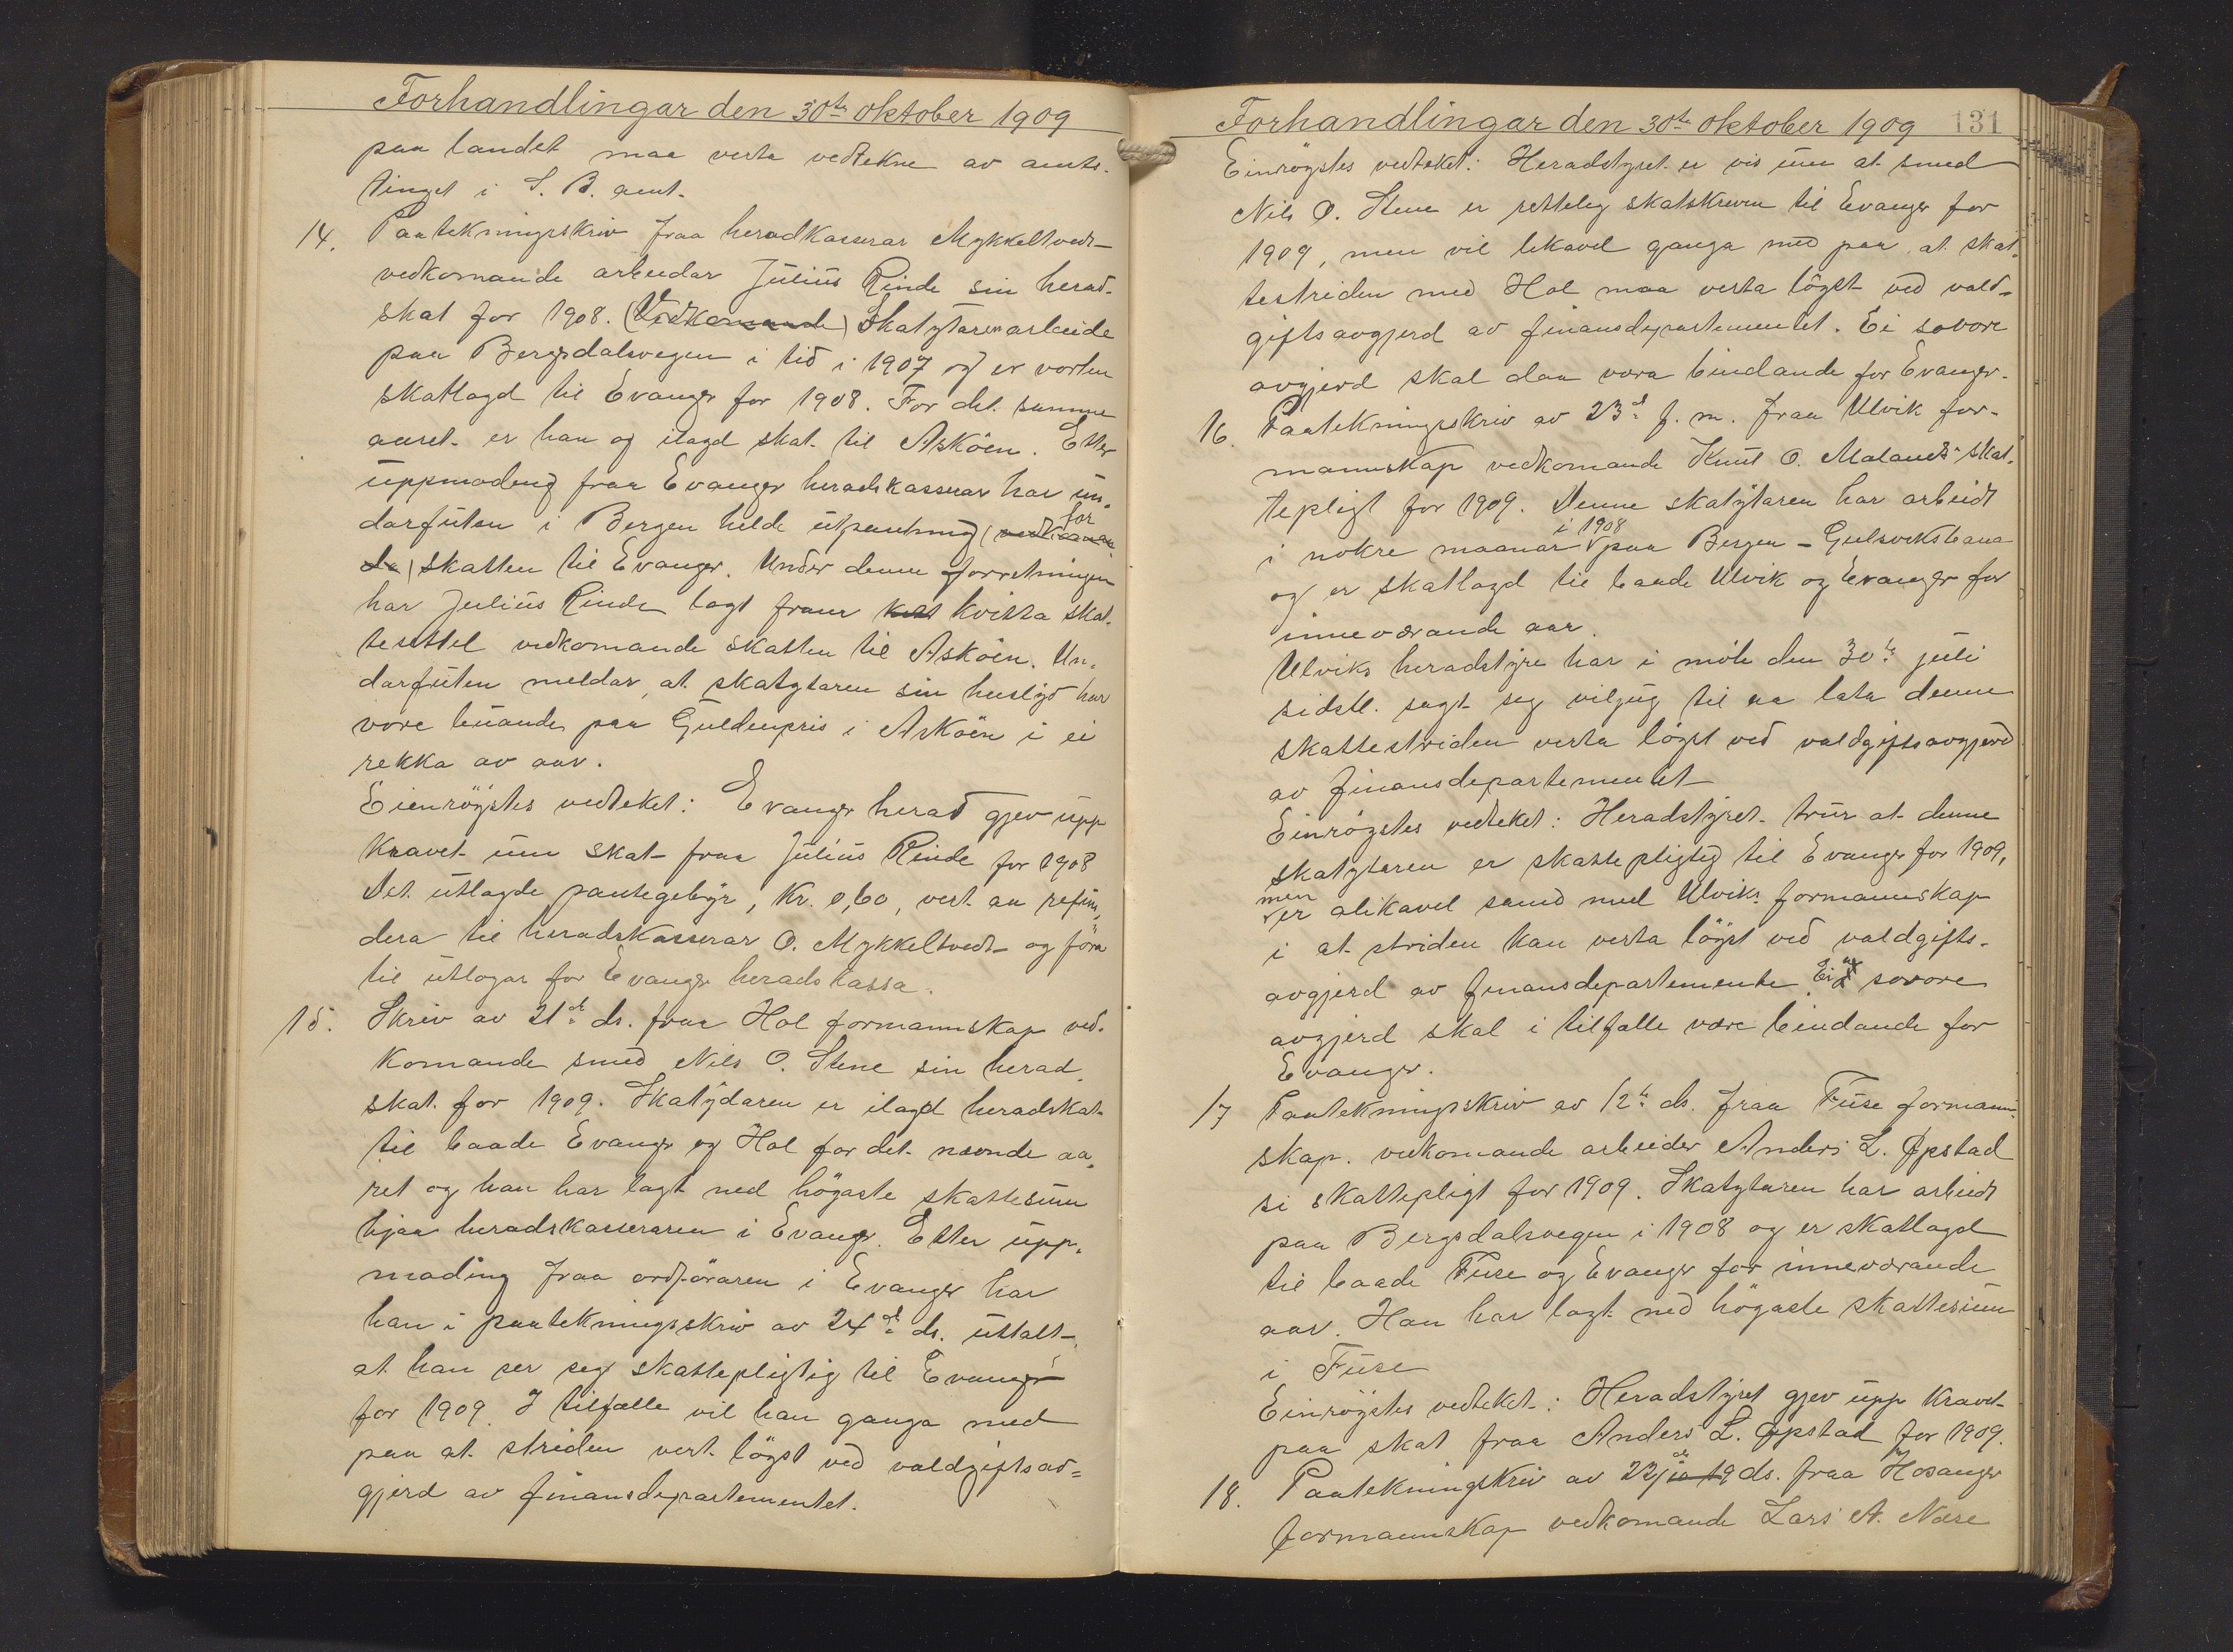 Forhandlingar den 30te oktober 1909
paa landet maa verta vedtekne av amts-
tinget i S. B. amt.
14. Paatekningsskriv fraa heradkasserar Mykkeltvedt
vedkomande arbeidar Julius Rinde sin herad-
skat for 1908. (Vedkomande) Skatytaren arbeide
paa Bergsdalsvegen i tid i 1907 og er vorten
skatlagd til Evanger for 1908. For det samme
aaret er han og ilagd skat til Asköen. Etter
uppmoding fraa Evanger heradskasserar har un-
darfuten i Bergen helde utpantning (vedkoman- for
de) skatten til Evanger. Under denne forretningen
har Julius Rinde lagt fram kvit kvitta skat-
tesettel vedkomande skatten til Asköen. Un-
darfuten meldar, at skatytaren sin huslyd har
vore buande paa Guldenpris i Asköen i ei
rekka av aar.
Eienrögstes vedteket: Evanger herad gjev upp
kravet um skat fraa Julius Rinde for 1908
Det utlagde pantegebyr, Kr. 0,60, vert aa refun-
dera til heradskasserar O. Mykkeltvedt og föra
til utlogar for Evanger heradskassa.
15. Skriv av 21de ds. fraa Hol formannskap ved-
komande smed Nils O. Stene sin herad-
skat for 1909. Skatydaren er ilagd heradskat
til baade Evanger og Hol for det nevnde aa-
ret og han har lagt ned högaste skattesum
hjaa heradskasseraren i Evanger. Etter upp-
mading fraa ordföraren i Evanger har
han i paatekningsskriv av 24de ds. uttalt
at han ser seg skattepligtig til Evanger
for 1909. I tilfælle vil han ganga med
paa at striden vert lögst ved valdgiftsav-
gjerd av finansdepartementet.
Forhandlingar den 30te oktober 1909 131
Einrögstes vedteket: Heradstyret er vis um at smed
Nils O. Stene er retteleg skatskreven til Evanger for
1909, men vil likavel ganga med paa at skat-
testriden med Hol maa verta lögst ved vald-
giftsavgjerd av finansdepartementet. Ei sovore
avgjerd skal daa vera bindande for Evanger.
16. Paatekningsskriv av 23de f. m. fraa Ulvik for-
mannskap vedkomande Knut O. Malands skat-
tepligt for 1909. Denne skatytaren har arbeidt
i nokre maanar i 1908 paa Bergen - Gulsviksbana
og er skatlagd til baade Ulvik og Evanger for
inneværande aar.
Ulviks heradstyre har i möte den 30te juli
sidstl. sagt seg viljug til aa lata denne
skattestriden verta lögst ved valdgiftsavgjerd
av finansdepartementet
Einrögstes vedteket: Heradstyret trur at denne
skatytaren er skattepligtig til Evanger for 1909,
men er alikavel samd med Ulviks formannskap
i at striden kan verta lögst ved valdgifts-
avgjerd av finansdepartemente. Ei sovore
avgjerd skal i tilfælle være bindande for
Evanger.
17 Paatekningsskriv av 12te ds. fraa Fuse formann-
skap. vedkomande arbeider Anders L. Øpstad
si skattepligt for 1909. Skatytaren har arbeidt
paa Bergsdalsvegen i 1908 og er skatlagd
til baade Fuse og Evanger for inneværande
aar. Han har lagt ned högaste skattesum
i Fuse
Einrögstes vedteket: Heradstyret gjev upp kravet
paa skat fraa Anders L. Øpstad for 1909.
18. Paatekningskriv av 22de ds. fraa Hosanger
formannskap vedkomande Lars A. Nese